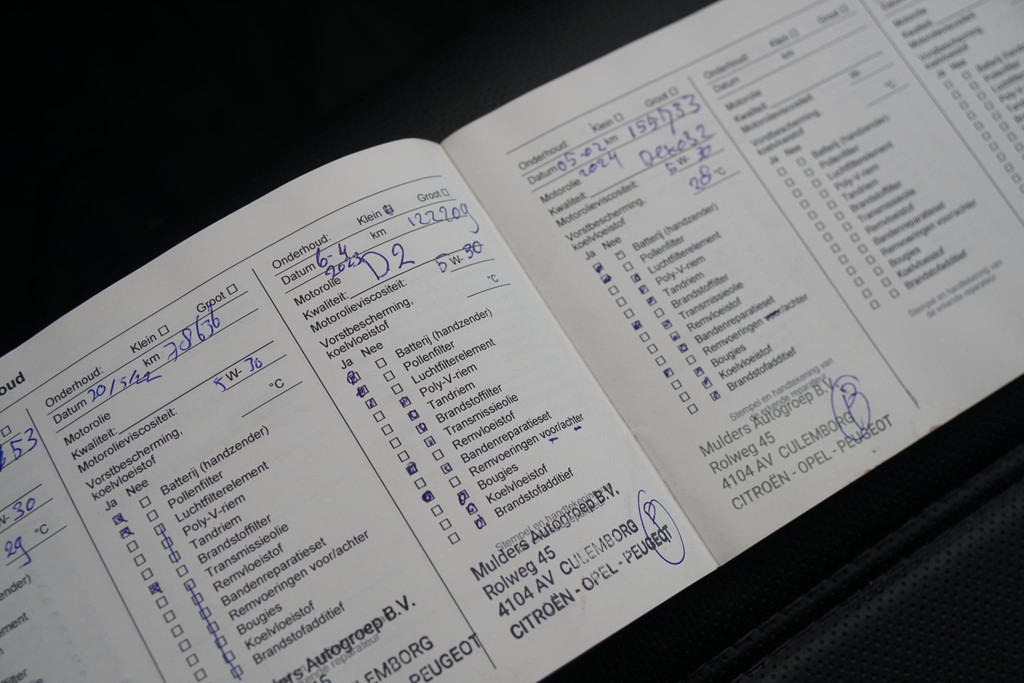 oud
553
W- 30
29 °C
Onderhoud: Klein Groot
Datum 20/5/22 km 78636
Motorolie
Kwaliteit:
Motorolieviscositeit: 5 W- 30
Vorstbescherming,
koelvloeistof °C
Ja Nee
Batterij (handzender)
Pollenfilter
Luchtfilterelement
Poly-V-riem
Tandriem
Brandstoffilter
Transmissieolie
Remvloeistof
Bandenreparatieset
Remvoeringen voor/achter
Bougies
Koelvloeistof
Brandstofadditief
Mulders Autogroep B.V.
CULEMBORG
PEUGEOT
Onderhoud: Klein Groot
Datum 6-4 2023 km 122209
Motorolie
Kwaliteit: D2
Motorolieviscositeit: 5 W- 30
Vorstbescherming,
koelvloeistof °C
Ja Nee
Batterij (handzender)
Pollenfilter
Luchtfilterelement
Poly-V-riem
Tandriem
Brandstoffilter
Transmissieolie
Remvloeistof
Bandenreparatieset
Remvoeringen voor/achter
Bougies
Koelvloeistof
Brandstofadditief
Stempel en handtekening
Mulders Autogroep B.V.
Rolweg 45
4104 AV CULEMBORG
CITROËN - OPEL - PEUGEOT
Onderhoud: Klein Groot
Datum 05-02 2024 km 155733
Motorolie
Kwaliteit: Dexos2
Motorolieviscositeit: 5 W- 30
Vorstbescherming,
koelvloeistof 28 °C
Ja Nee
Batterij (handzender)
Pollenfilter
Luchtfilterelement
Poly-V-riem
Tandriem
Brandstoffilter
Transmissieolie
Remvloeistof
Bandenreparatieset
Remvoeringen voor/achter
Bougies
Koelvloeistof
Brandstofadditief
Stempel en handtekening van
Mulders Autogroep B.V.
Rolweg 45
4104 AV CULEMBORG
CITROËN - OPEL - PEUGEOT
Onderhoud: Klein Groot
Datum km
Motorolie
Kwaliteit:
Motorolieviscositeit: W-
Vorstbescherming,
koelvloeistof °C
Ja Nee
Batterij (handzender)
Pollenfilter
Luchtfilterelement
Poly-V-riem
Tandriem
Brandstoffilter
Transmissieolie
Remvloeistof
Bandenreparatieset
Remvoeringen voor/achter
Bougies
Koelvloeistof
Brandstofadditief
Stempel en handtekening van
de erkende reparateur